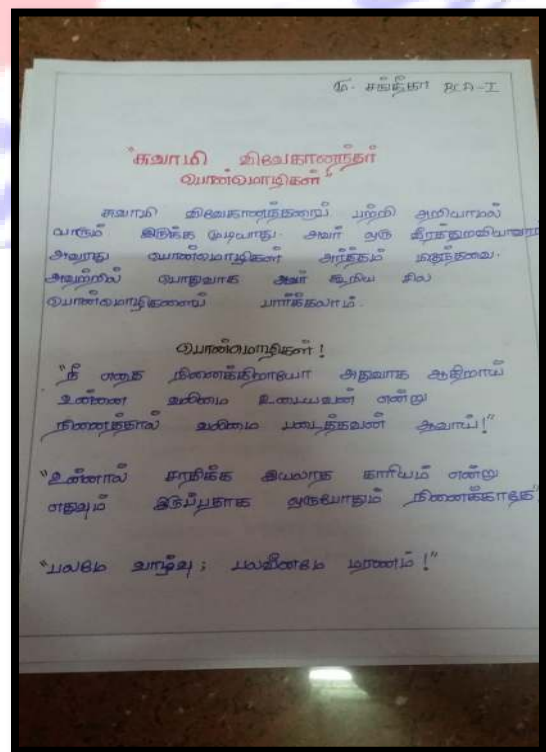 மு. சங்கீதா BCA-I
"சுவாமி விவேகானந்தர்
பொன்மொழிகள்"
சுவாமி விவேகானந்தரைப் பற்றி அறியாமல்
யாரும் இருக்க முடியாது. அவர் ஒரு வீரத்துறவியாவார்
அவரது பொன்மொழிகள் அர்த்தம் மிகுந்தவை.
அவற்றில் பொதுவாக அவர் கூறிய சில
பொன்மொழிகளைப் பார்க்கலாம்.
பொன்மொழிகள் !
"நீ எதை நினைக்கிறாயோ அதுவாக ஆகிறாய்
உன்னை வலிமை உடையவன் என்று
நினைத்தால் வலிமை படைத்தவன் ஆவாய்!"
"உன்னால் சாதிக்க இயலாத காரியம் என்று
எதுவும் இருப்பதாக ஒருபோதும் நினைக்காதே"
"பலமே வாழ்வு ; பலவீனமே மரணம் !"